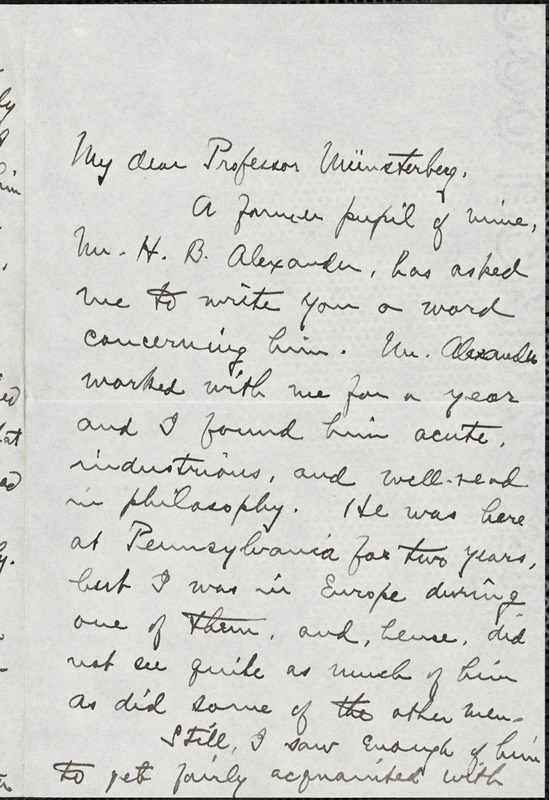 My dear Professor Münsterberg,
A former pupil of mine,
Mr. H. B. Alexander, has asked
me to write you a word
concerning him. Mr. Alexander
worked with me for a year
and I found him acute,
industrious, and well-read
in philosophy. He was here
at Pennsylvania for two years,
but I was in Europe during
one of them, and, hence, did
not see quite as much of him
as did some of the other men.
Still, I saw enough of him
to get fairly acquainted with